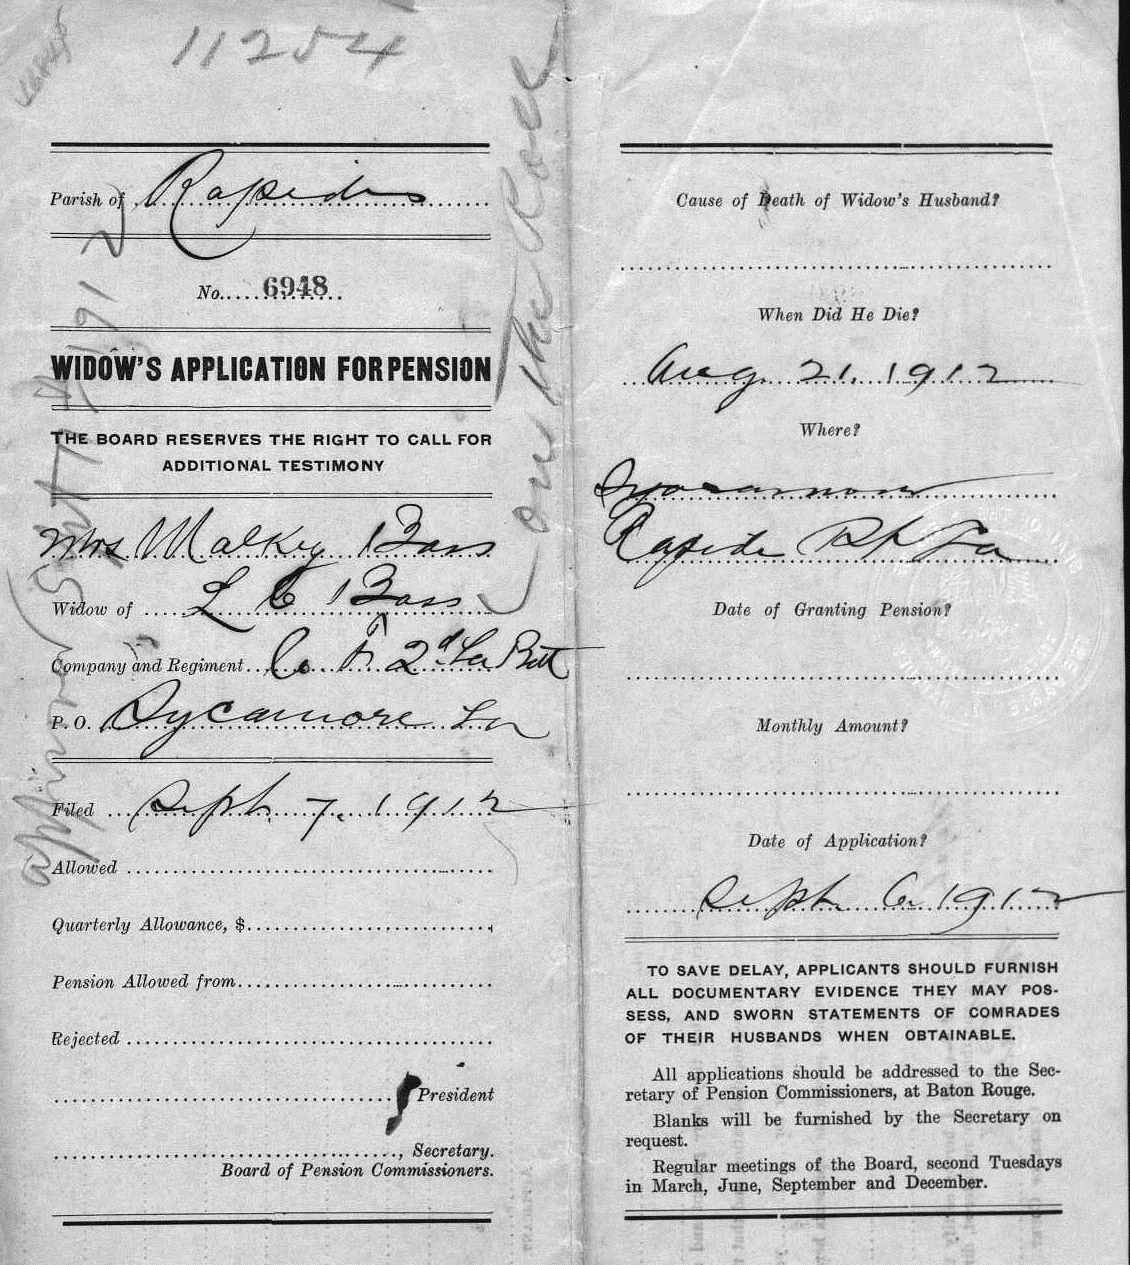 11254
Parish of Rapides
No. 6948
WIDOW'S APPLICATION FOR PENSION
THE BOARD RESERVES THE RIGHT TO CALL FOR
ADDITIONAL TESTIMONY
Mrs Malkey Bass
Widow of L C Bass
Company and Regiment Co F 2d La Batt
P. O. Sycamore La
Filed Sept. 7. 1912
Allowed
Quarterly Allowance, $
Pension Allowed from
Rejected
President
, Secretary.
Board of Pension Commissioners.
approved Sept 7 1912
on the Roll
Cause of Death of Widow's Husband?
When Did He Die?
Aug. 21. 1912
Where?
Sycamore
Rapides Ph La
Date of Granting Pension?
Monthly Amount?
Date of Application?
Sept. 6. 1912
TO SAVE DELAY, APPLICANTS SHOULD FURNISH
ALL DOCUMENTARY EVIDENCE THEY MAY POS-
SESS, AND SWORN STATEMENTS OF COMRADES
OF THEIR HUSBANDS WHEN OBTAINABLE.
All applications should be addressed to the Sec-
retary of Pension Commissioners, at Baton Rouge.
Blanks will be furnished by the Secretary on
request.
Regular meetings of the Board, second Tuesdays
in March, June, September and December.